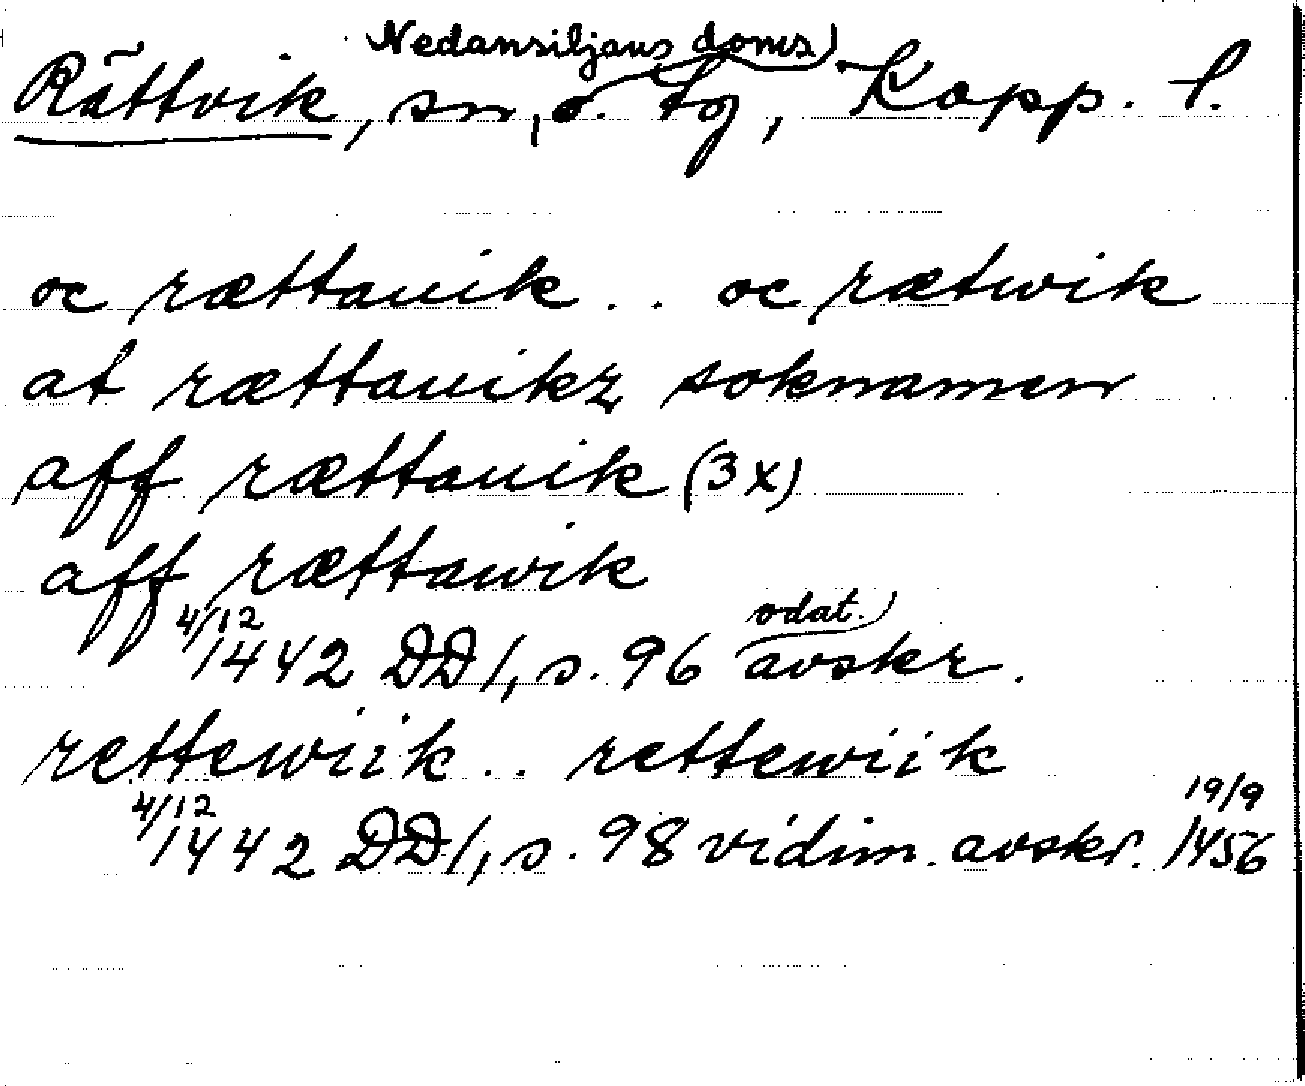 Nedansiljans doms
Rättvik, sn, o. tg, Kopp. l.
oc rættauik .. oc rætwik
at rættauikz soknamen
aff rættauik (3 x)
aff rættawik
4/12 1442 DD 1, s. 96 odat. avskr.
rettewiik .. rettewiik
4/12 1442 DD 1, s. 98 vidim. avskr. 19/9 1456